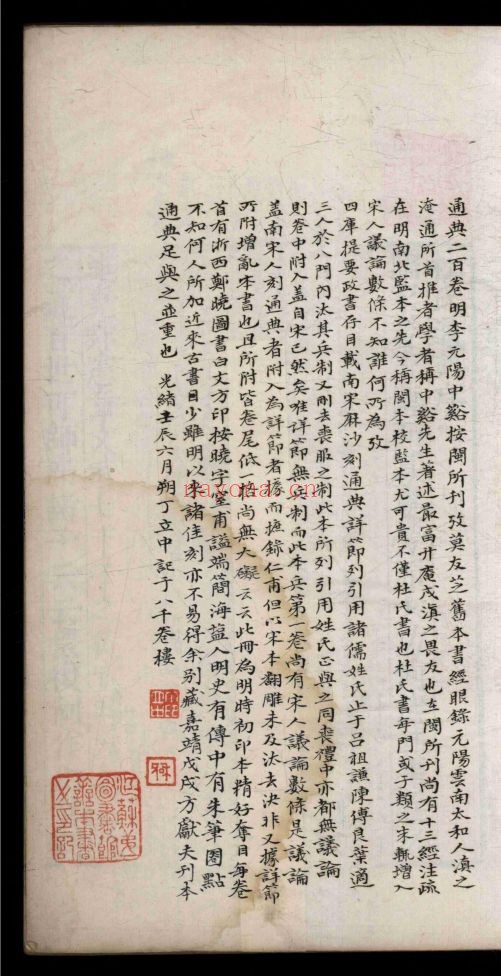 通典二百卷明李元陽中谿按閩所刊攷莫友芝舊本書經眼錄元陽雲南太和人滇之
淹通所首推者學者稱中谿先生著述最富升庵戍滇之畏友也在閩所刊尚有十三經注疏
在明南北監本之先今稱閩本校監本尤可貴不僅杜氏書也杜氏書每門或子類之末輒增入
宋人議論數條不知誰何所為攷
四庫提要政書存目載南宋麻沙刻通典詳節列引用諸儒姓氏止于呂祖謙陳傅良葉適
三人於八門內汰其兵制又刪去喪服之制此本所列引用姓氏正與之同喪禮中亦都無議論
則卷中附入蓋自宋已然矣唯詳節無兵制而此本兵第一卷尚有宋人議論數條是議論
蓋南宋人刻通典者附入為詳節者據而撫錄仁甫但以宋本翻雕未及汰去決非又據詳節
所附增亂本書也且所附皆卷尾低一格尚無大礙云云此冊為明時初印本精好奪目每卷
首有浙西鄭曉圖書白文方印按曉字窒甫謚端簡海鹽人明史有傳中有朱筆圈點
不知何人所加近來古書日少雖明以來諸佳刻亦不易得余別藏嘉靖戊戌方獻夫刊本
通典足與之並重也 光緒壬辰六月朔丁立中記于八千卷樓
nayona.cn